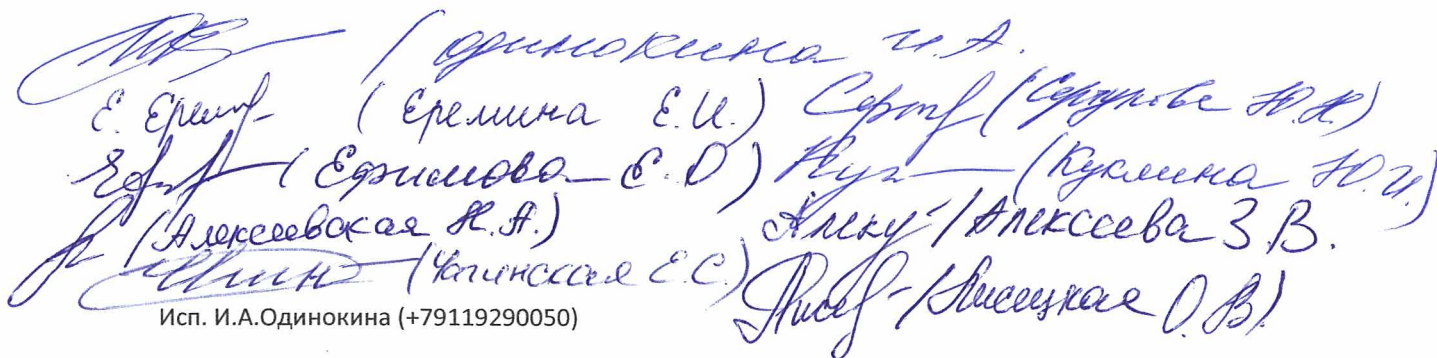 (Одинокина И.А.
Е. Ерем (Еремина Е.И.) (Сергунова Ю.Н.)
(Ефимова Е.О) (Куклина Ю.И.)
(Алексеевская Н.А.) Алекс /Алексеева З.В.
(Чагинская Е.С.) Лисец /Лисецкая О.В)
Исп. И.А.Одинокина (+79119290050)